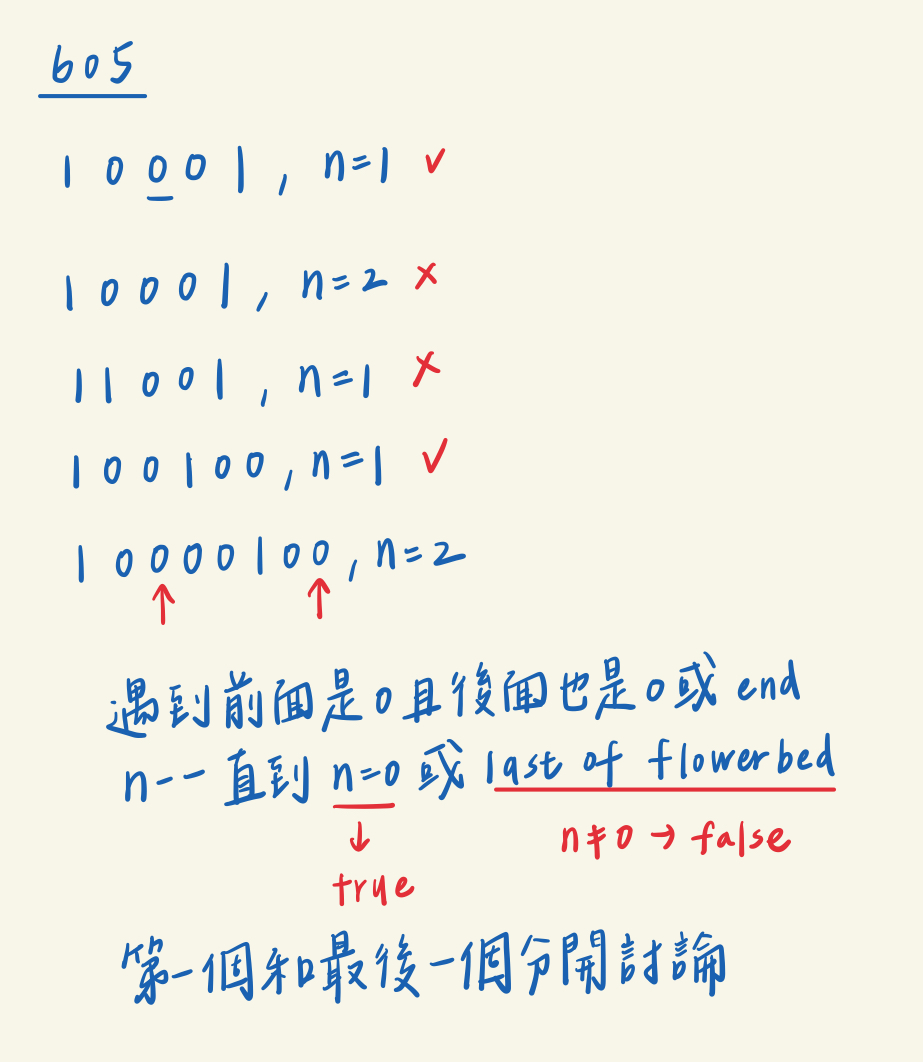 605
10001, n=1 ✓
10001, n=2 ✗
11001, n=1 ✗
100100, n=1 ✓
10000100, n=2
↑ ↑
遇到前面是0且後面也是0或 end
n-- 直到 n=0 或 last of flowerbed
↓ n≠0 → false
true
第一個和最後一個分開討論